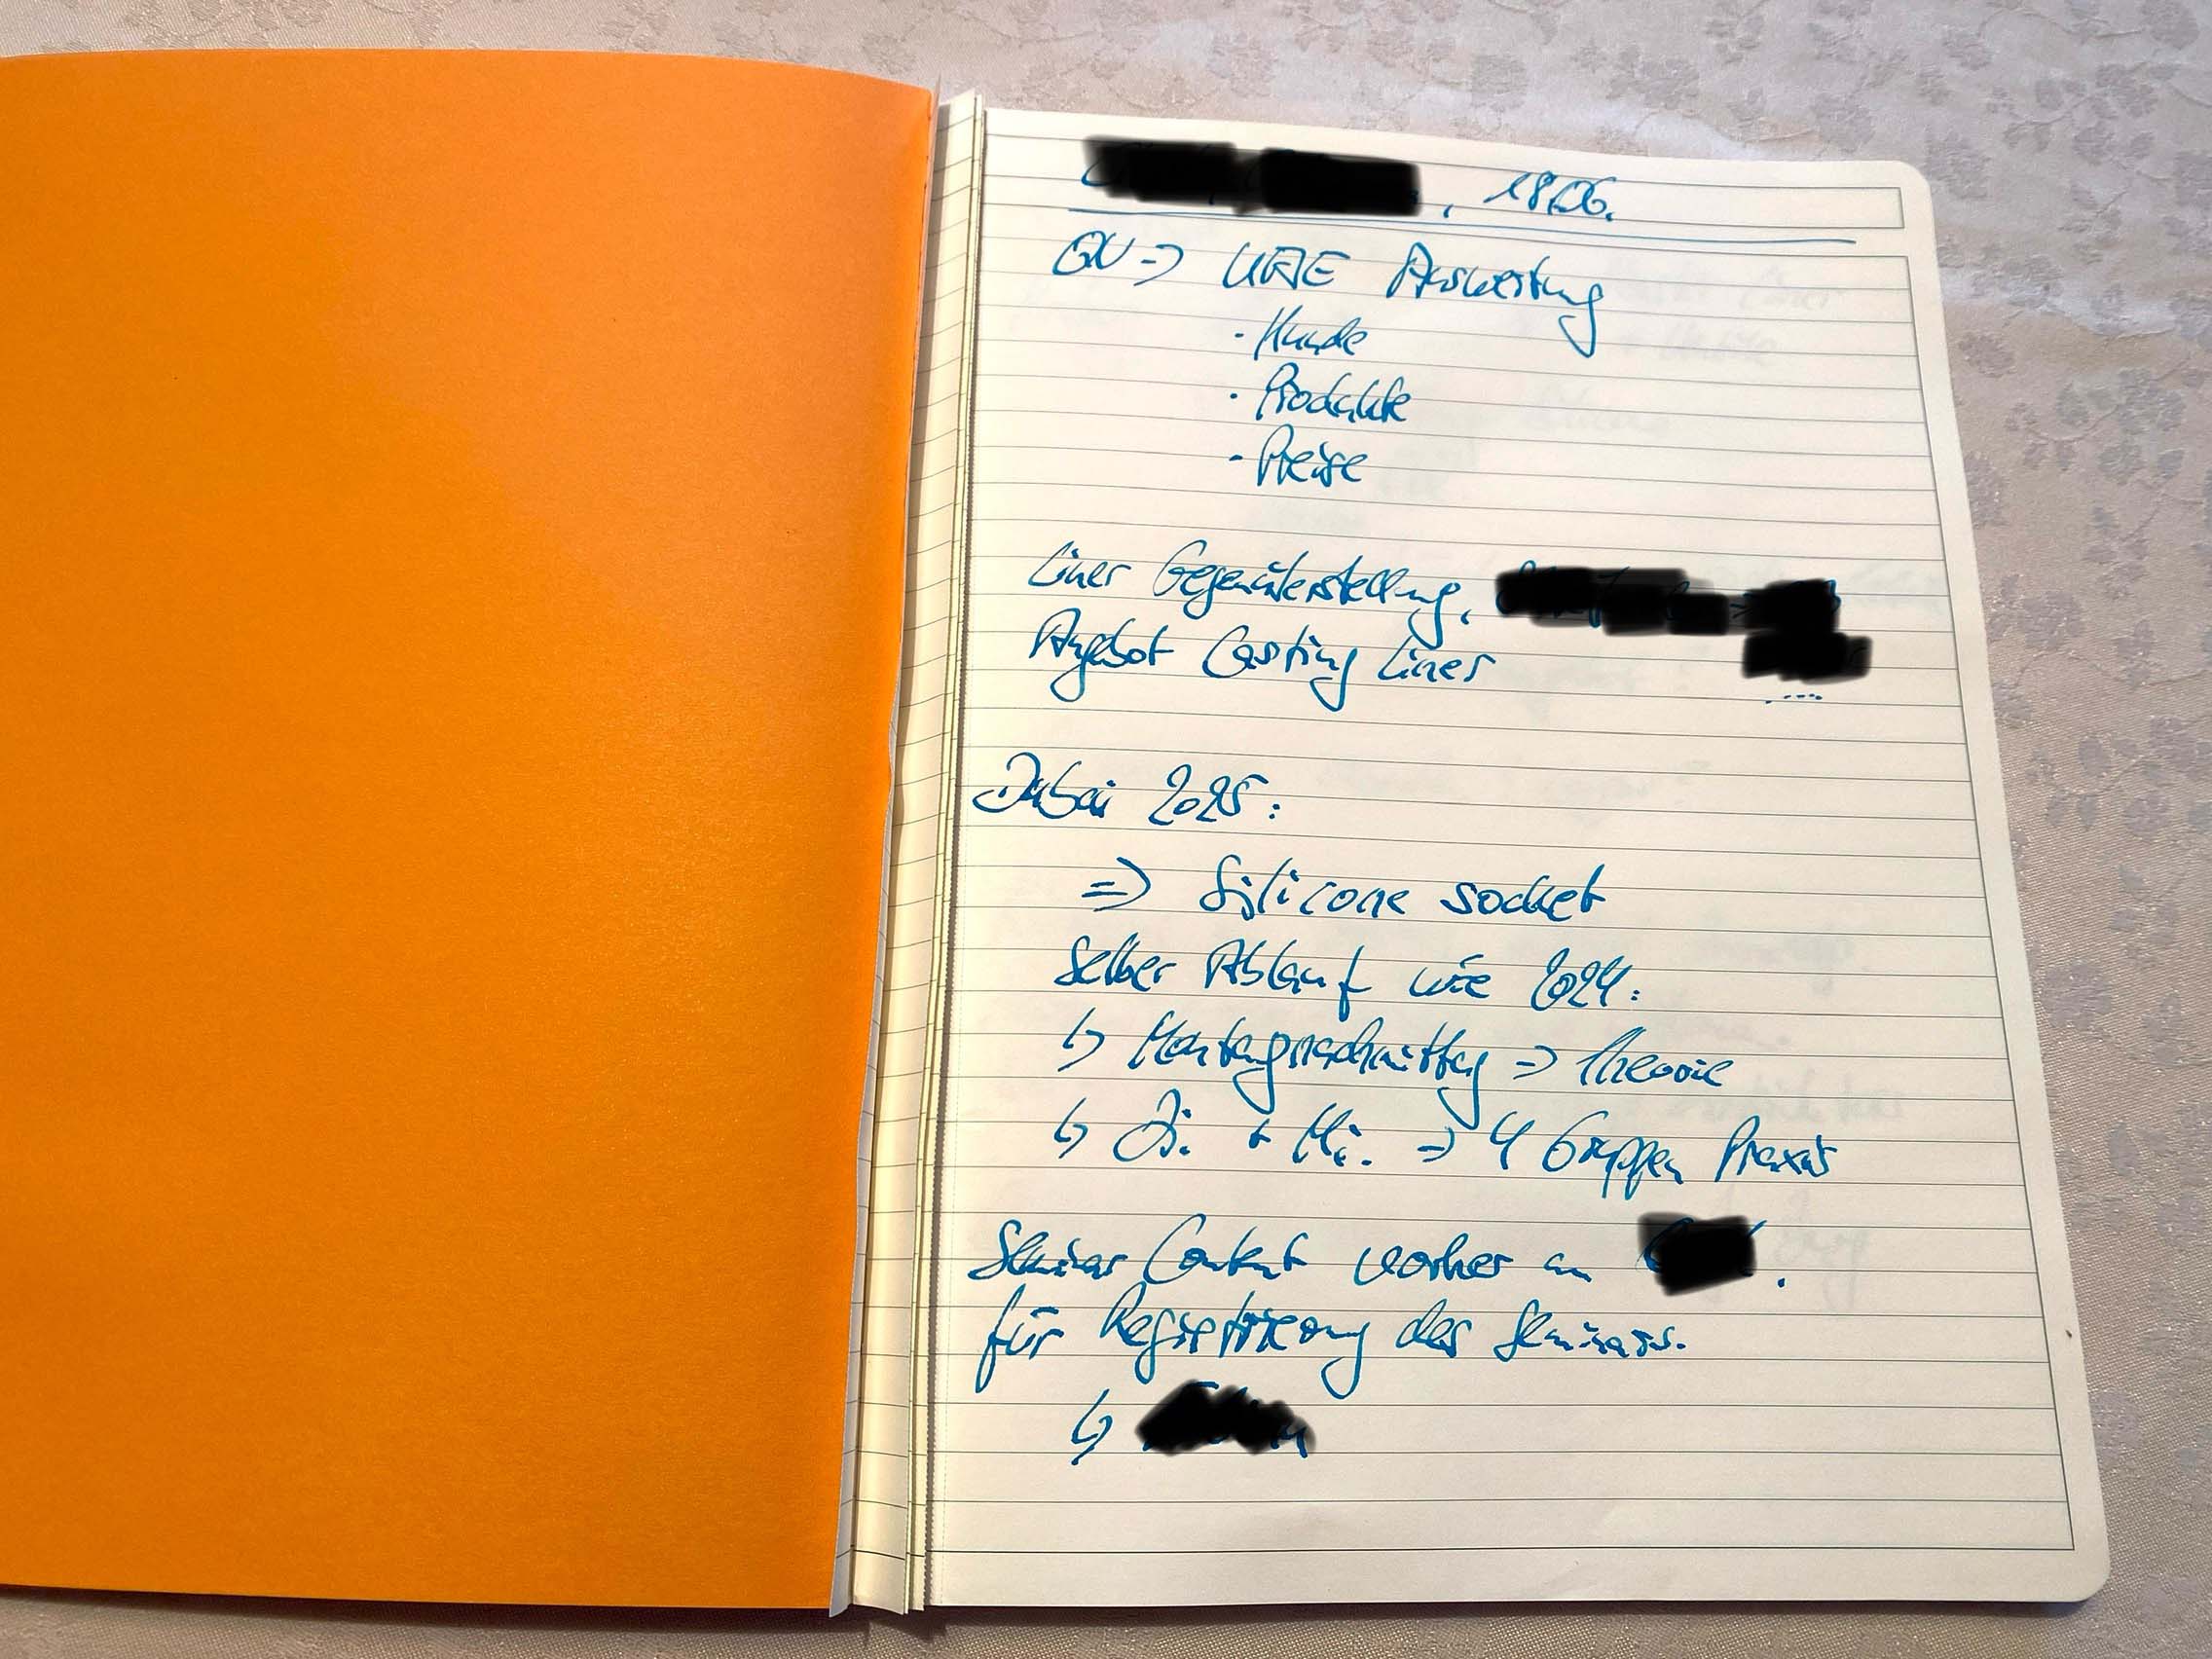 , 18.06.
QV => UAE Auswertung
· Kunde
· Produkte
· Preise
Liner Gegenüberstellung,
Angebot Casting Liner
....
Dubai 2025:
=> Silicone socket
Selber Ablauf wie 2024:
↳ Montagnachmittag => Theorie
↳ Di. + Mi. => 4 Gruppen Praxis
Seminar Content vorher an .
für Registrierung des Seminars.
↳